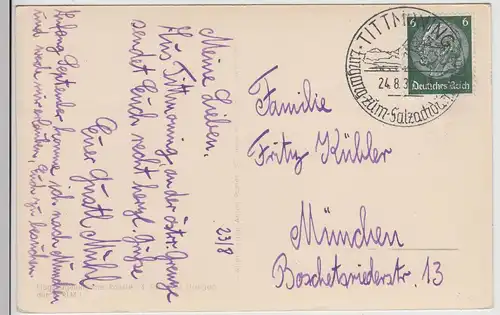 Meine Lieben.
Aus Tittmoning, an der östr. Grenze
sendet Euch recht herzl. Grüße
Euer Gustl Mühl
23/8
Anfang September komme ich nach München
und werde mir erlauben, Euch zu besuchen.
Familie
Fritz Kühler
München
Boschetsriederstr. 13
TITTMONING
24.8.3
Salzach
6 6
Deutsches Reich